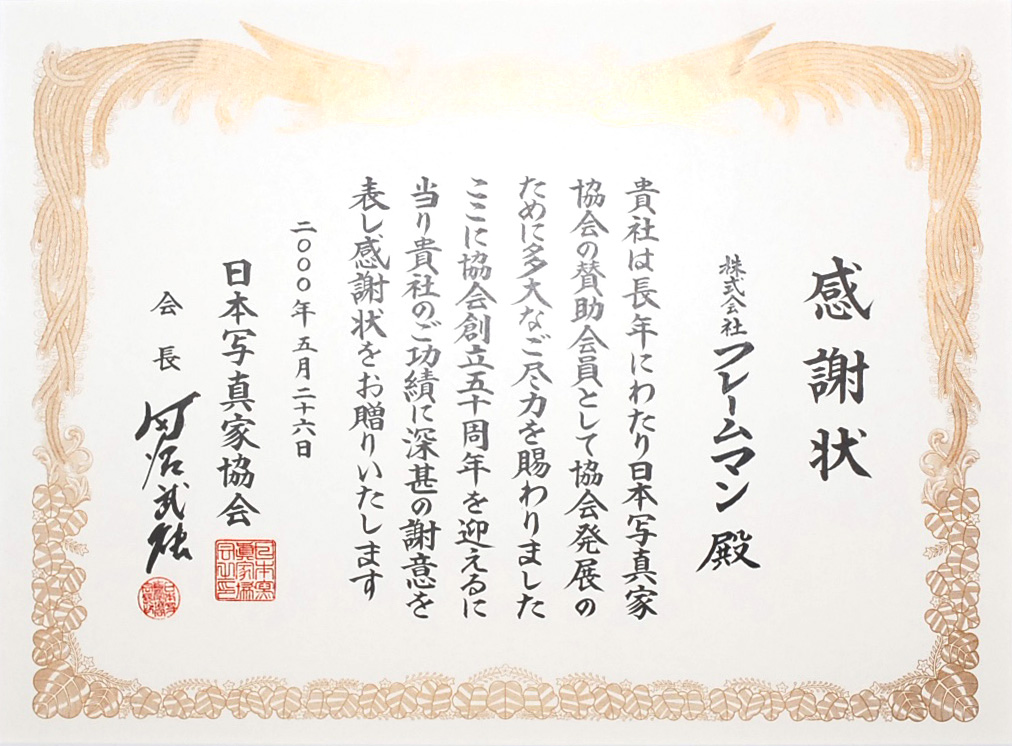 感謝状
株式会社フレームマン 殿
貴社は長年にわたり日本写真家
協会の賛助会員として協会発展の
ために多大なご尽力を賜わりました
ここに協会創立五十周年を迎えるに
当り貴社のご功績に深甚の謝意を
表し感謝状をお贈りいたします
二〇〇〇年五月二十六日
日本写真家協会
会長